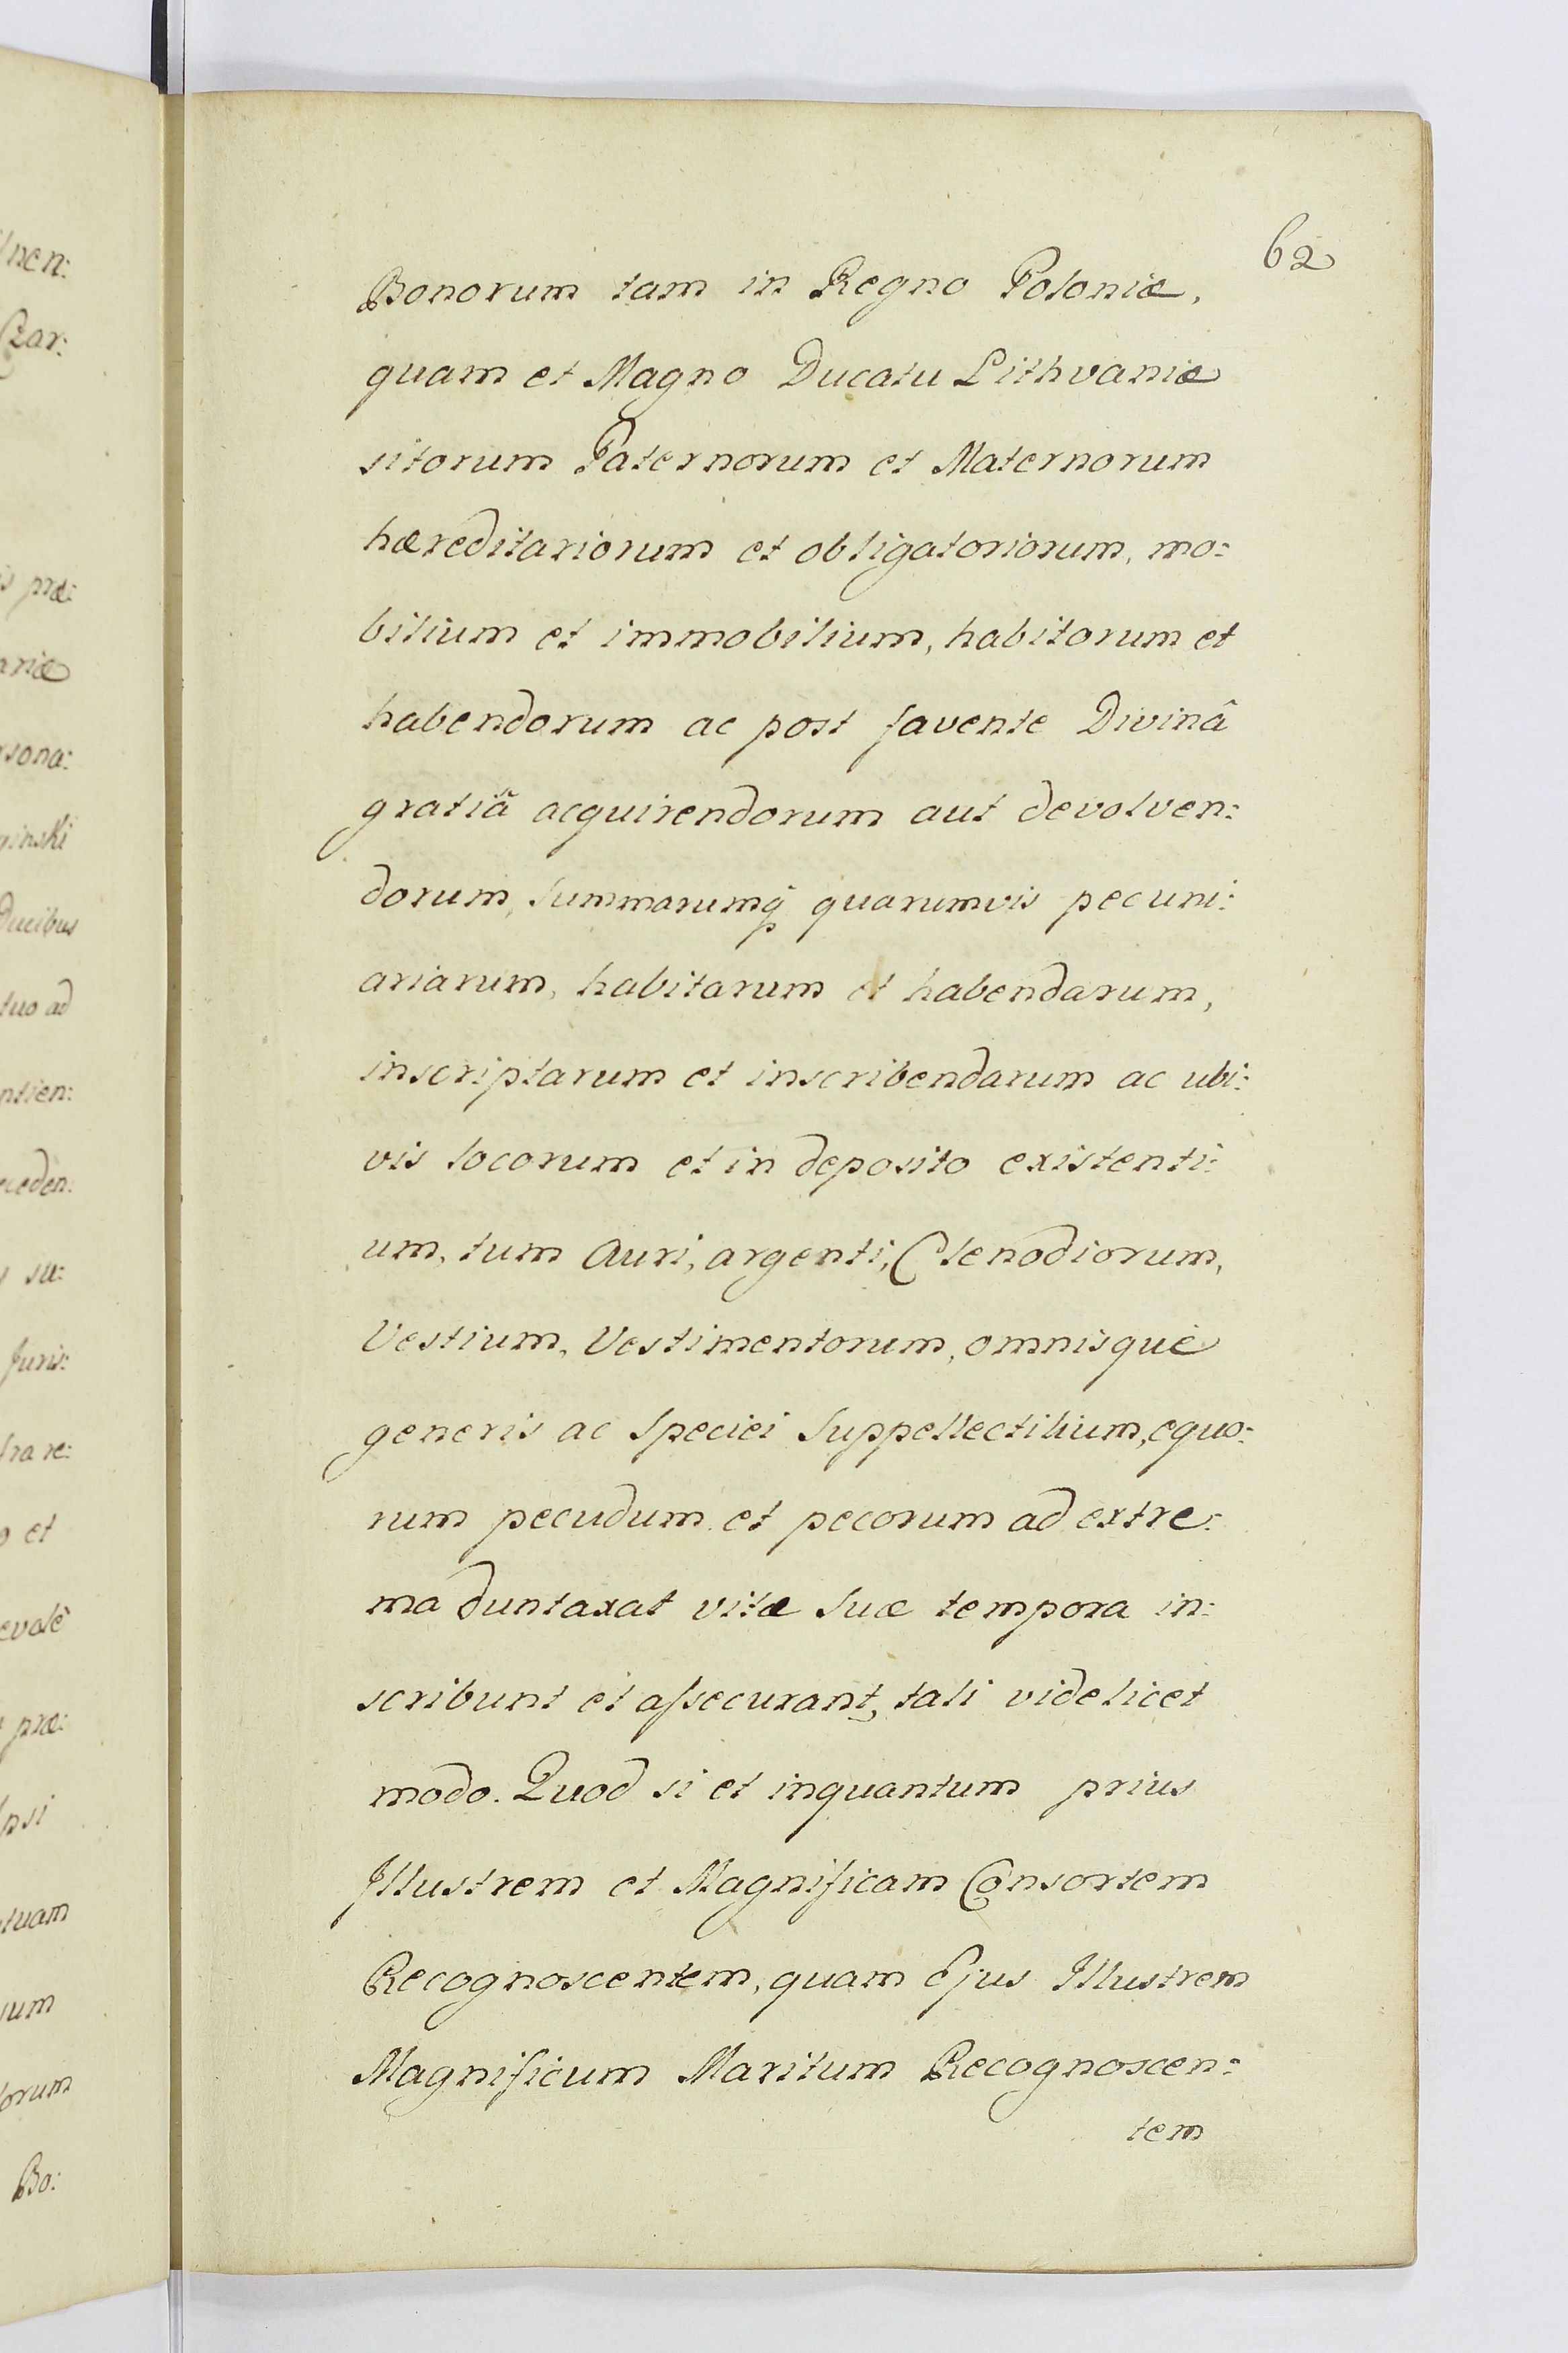 62
Bonorum tam in Regno Poloniæ,
quam et Magno Ducatu Lithvaniæ
sitorum Paternorum et Maternorum
hæreditariorum et obligatoriorum, mo:
bilium et immobilium, habitorum et
habendorum ac post favente Divinâ
gratiâ acquirendorum aut devolven:
dorum, summarumq́ quarumvis pecuni:
ariarum, habitarum et habendarum,
inscriptarum et inscribendarum ac ubi:
vis locorum et in deposito existenti:
um, tum Auri, argenti, Clenodiorum,
Vestium, Vestimentorum, omnisque
generis ac speciei suppellectilium, equo:
rum pecudum et pecorum ad extre:
ma duntaxat vitæ suæ tempora in:
scribunt et aſsecurant, tali videlicet
modo. Quod si et inquantum prius
Illustrem et Magnificam Consortem
Recognoscentem, quam Ejus Illustrem
Magnificum Maritum Recognoscen:
tem
nen:
Czar:
præ:
ariæ
sona:
ginski
Ducibus
tuo ad
ntien:
ceden:
su:
Juris:
tra re:
et
evolè
præ:
psi
tuam
ium
lorum
Bo: